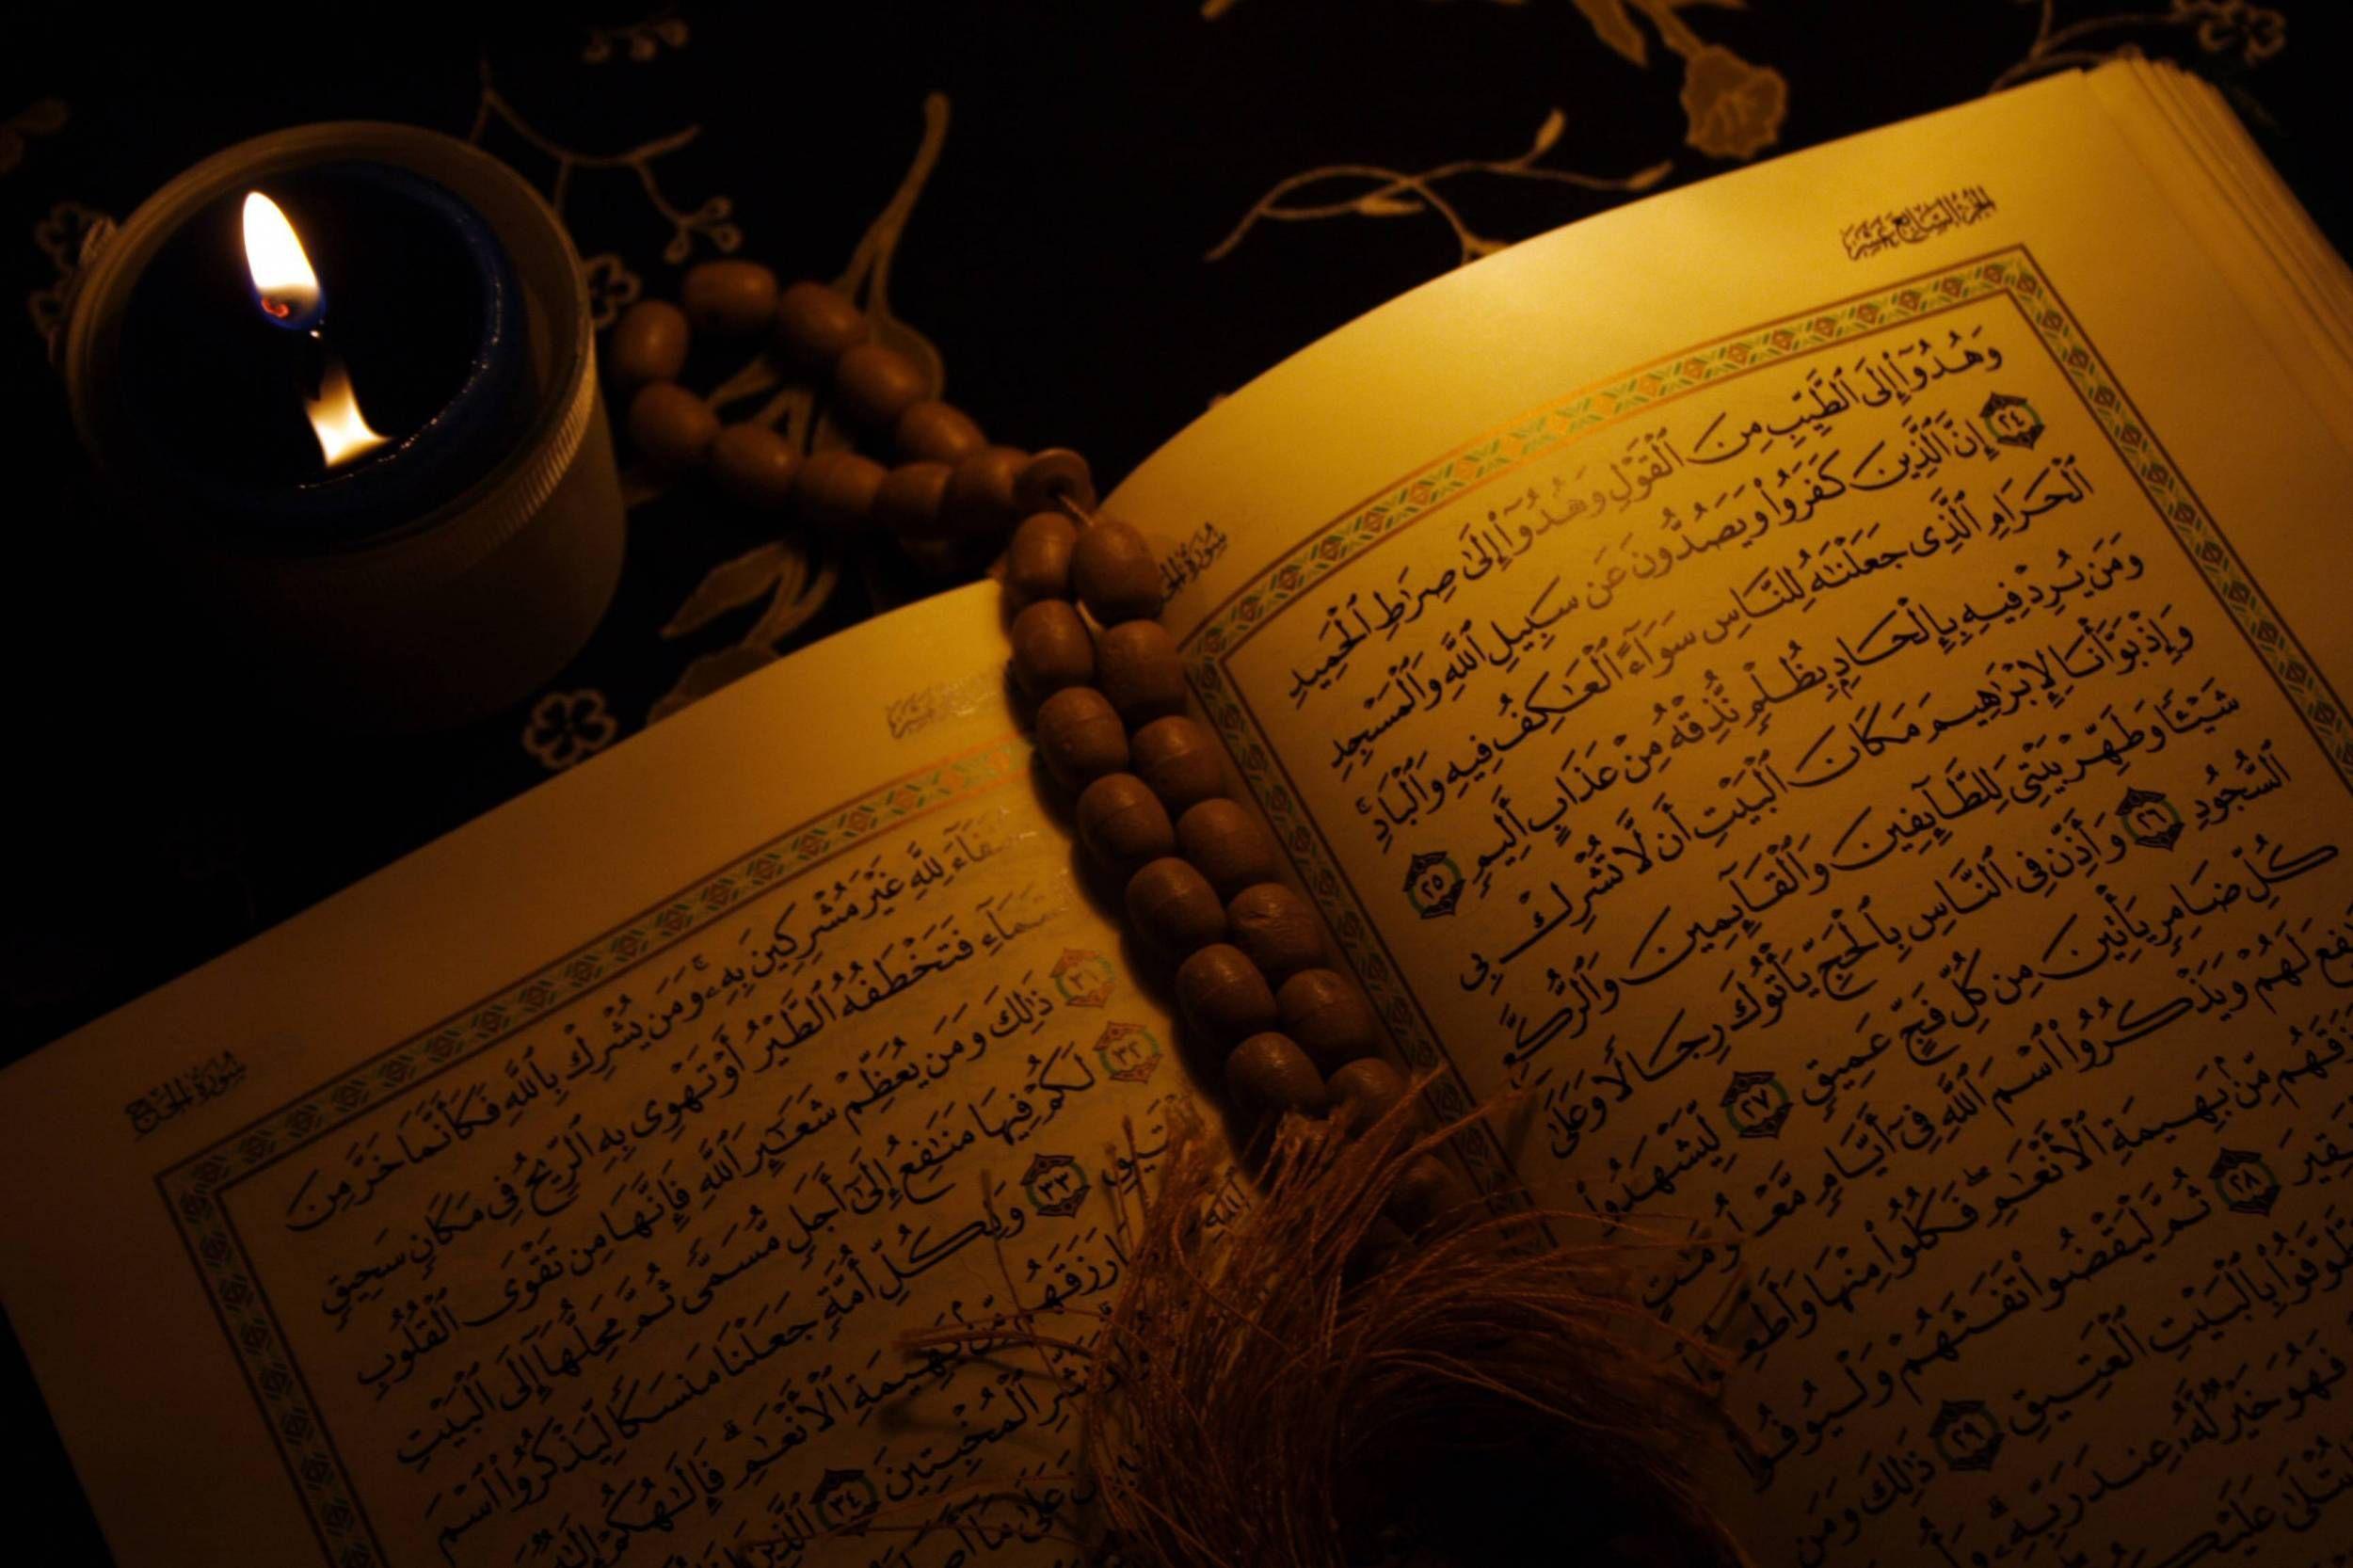 الجزء السابع عشر
سورة الحج
وَهُدُوٓا۟ إِلَى ٱلطَّيِّبِ مِنَ ٱلْقَوْلِ وَهُدُوٓا۟ إِلَىٰ صِرَٰطِ ٱلْحَمِيدِ
٢٤ إِنَّ ٱلَّذِينَ كَفَرُوا۟ وَيَصُدُّونَ عَن سَبِيلِ ٱللَّهِ وَٱلْمَسْجِدِ
ٱلْحَرَامِ ٱلَّذِى جَعَلْنَٰهُ لِلنَّاسِ سَوَآءً ٱلْعَٰكِفُ فِيهِ وَٱلْبَادِ ۚ
وَمَن يُرِدْ فِيهِ بِإِلْحَادٍۭ بِظُلْمٍ نُّذِقْهُ مِنْ عَذَابٍ أَلِيمٍ ٢٥
وَإِذْ بَوَّأْنَا لِإِبْرَٰهِيمَ مَكَانَ ٱلْبَيْتِ أَن لَّا تُشْرِكْ بِى
شَيْـًٔا وَطَهِّرْ بَيْتِىَ لِلطَّآئِفِينَ وَٱلْقَآئِمِينَ وَٱلرُّكَّعِ
ٱلسُّجُودِ ٢٦ وَأَذِّن فِى ٱلنَّاسِ بِٱلْحَجِّ يَأْتُوكَ رِجَالًا وَعَلَىٰ
كُلِّ ضَامِرٍ يَأْتِينَ مِن كُلِّ فَجٍّ عَمِيقٍ ٢٧ لِّيَشْهَدُوا۟
لَهُمْ وَيَذْكُرُوا۟ ٱسْمَ ٱللَّهِ فِىٓ أَيَّامٍ مَّعْلُومَٰتٍ
مِّنۢ بَهِيمَةِ ٱلْأَنْعَٰمِ ۖ فَكُلُوا۟ مِنْهَا وَأَطْعِمُوا۟
٢٨ ثُمَّ لْيَقْضُوا۟ تَفَثَهُمْ وَلْيُوفُوا۟
بِٱلْبَيْتِ ٱلْعَتِيقِ ٢٩ ذَٰلِكَ وَمَن
فَهُوَ خَيْرٌ لَّهُۥ عِندَ رَبِّهِۦ ۗ
سورة الحج
لِلَّهِ غَيْرَ مُشْرِكِينَ بِهِۦ ۚ وَمَن يُشْرِكْ بِٱللَّهِ فَكَأَنَّمَا خَرَّ مِنَ
فَتَخْطَفُهُ ٱلطَّيْرُ أَوْ تَهْوِى بِهِ ٱلرِّيحُ فِى مَكَانٍ سَحِيقٍ
٣١ ذَٰلِكَ وَمَن يُعَظِّمْ شَعَٰٓئِرَ ٱللَّهِ فَإِنَّهَا مِن تَقْوَى ٱلْقُلُوبِ
٣٢ لَكُمْ فِيهَا مَنَٰفِعُ إِلَىٰٓ أَجَلٍ مُّسَمًّى ثُمَّ مَحِلُّهَآ إِلَى ٱلْبَيْتِ
٣٣ وَلِكُلِّ أُمَّةٍ جَعَلْنَا مَنسَكًا لِّيَذْكُرُوا۟ ٱسْمَ
رَزَقَهُم مِّنۢ بَهِيمَةِ ٱلْأَنْعَٰمِ ۗ فَإِلَٰهُكُمْ
ٱلْمُخْبِتِينَ ٣٤ ٱلَّذِينَ
عَلَىٰ مَآ